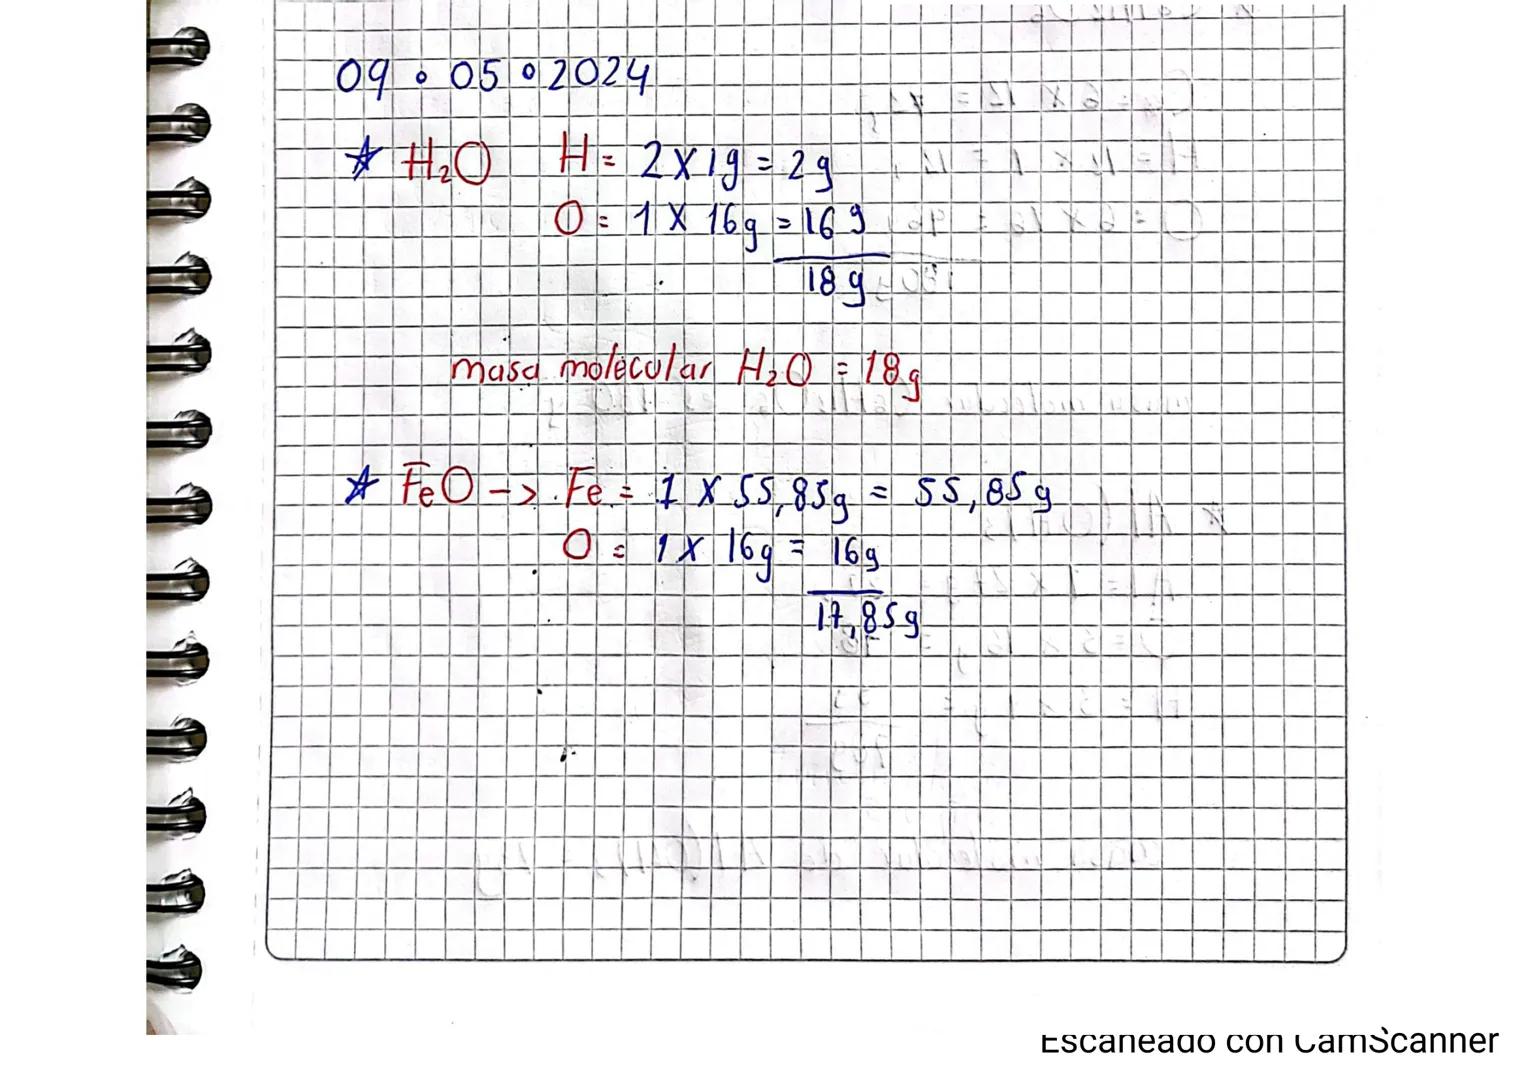 09 • 05 • 2024
☆ H₂O H = 2 X 1g = 2g
O = 1 X 16g = 16g
18g
masa molecular H₂O = 18g
☆ FeO -> Fe = 1 X 55,85g = 55,85g
O = 1 X 16g = 16g
17,85g
Escaneado con CamScanner